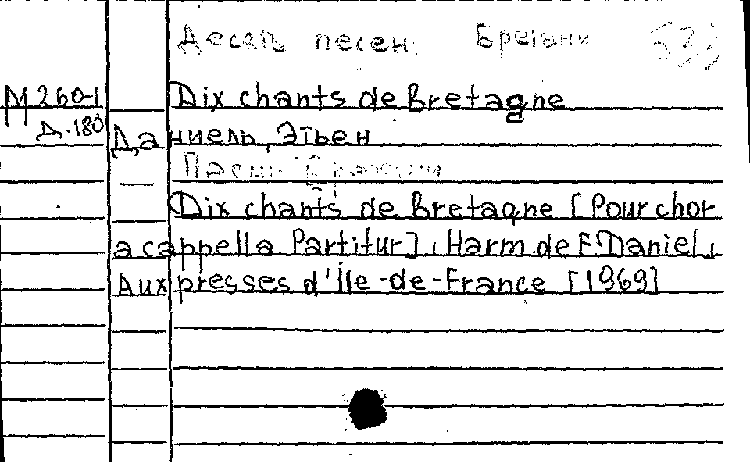 Десять песен Бретани 533
М 260-1 Dix chants de Bretagne
Д-180 Даниель, Этьен
Песни Бретани
Dix chants de Bretagne [Pour chor
a cappella Partitur], Harm de E. Daniel,
Aux presses d'Île-de-France [1969]